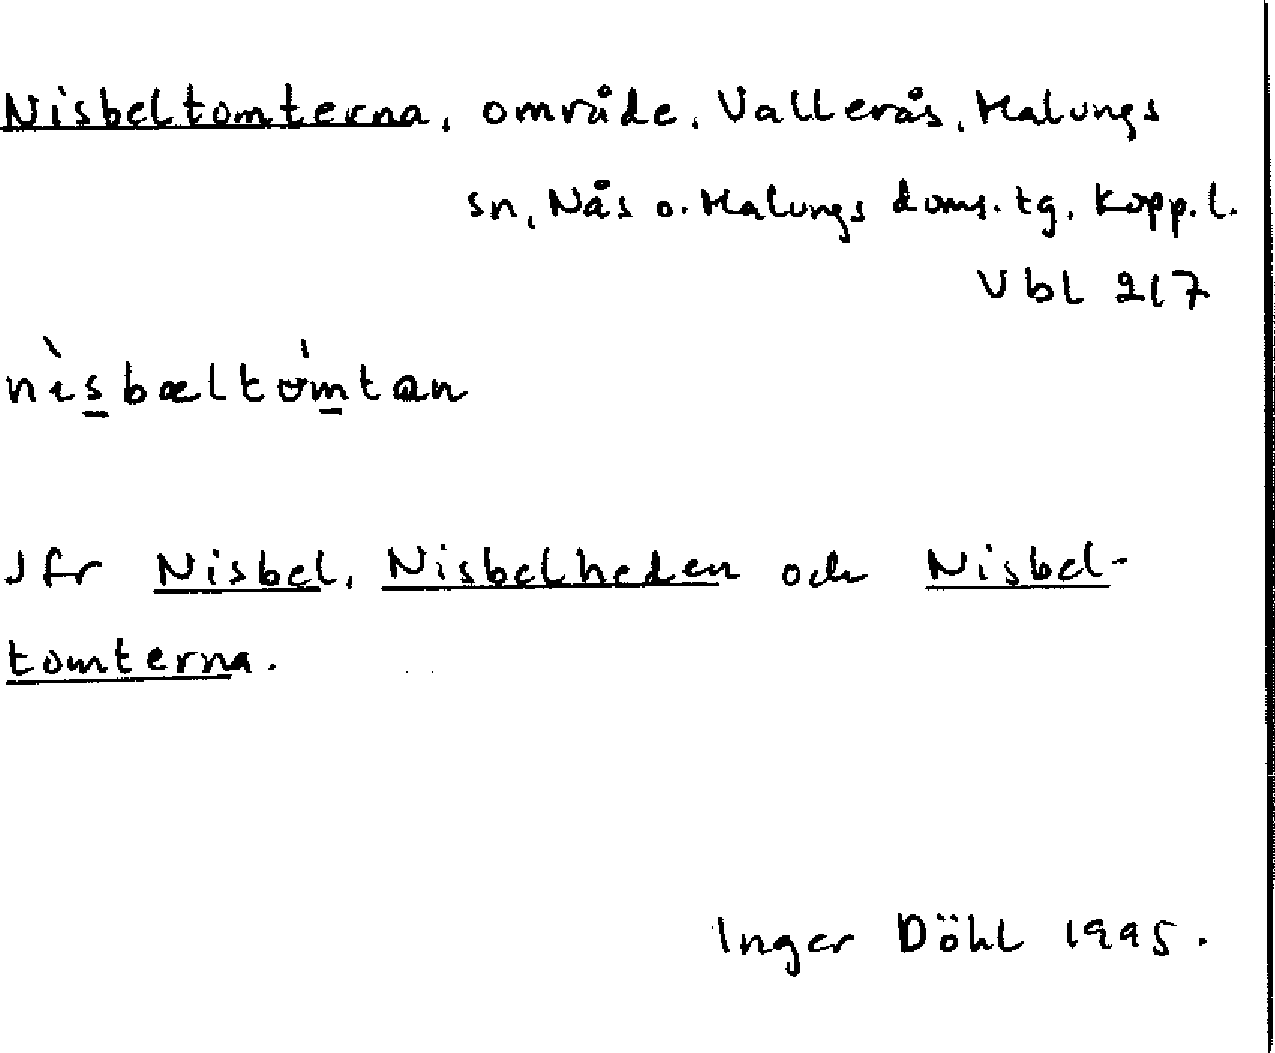 Nisbeltomterna, område, Vallerås, Malungs
sn, Nås o. Malungs doms. tg, Kopp. l.
Vbl 217
nìsbæltømtαn
Jfr Nisbel, Nisbelheden och Nisbel-
tomterna.
Inger Döhl 1995.